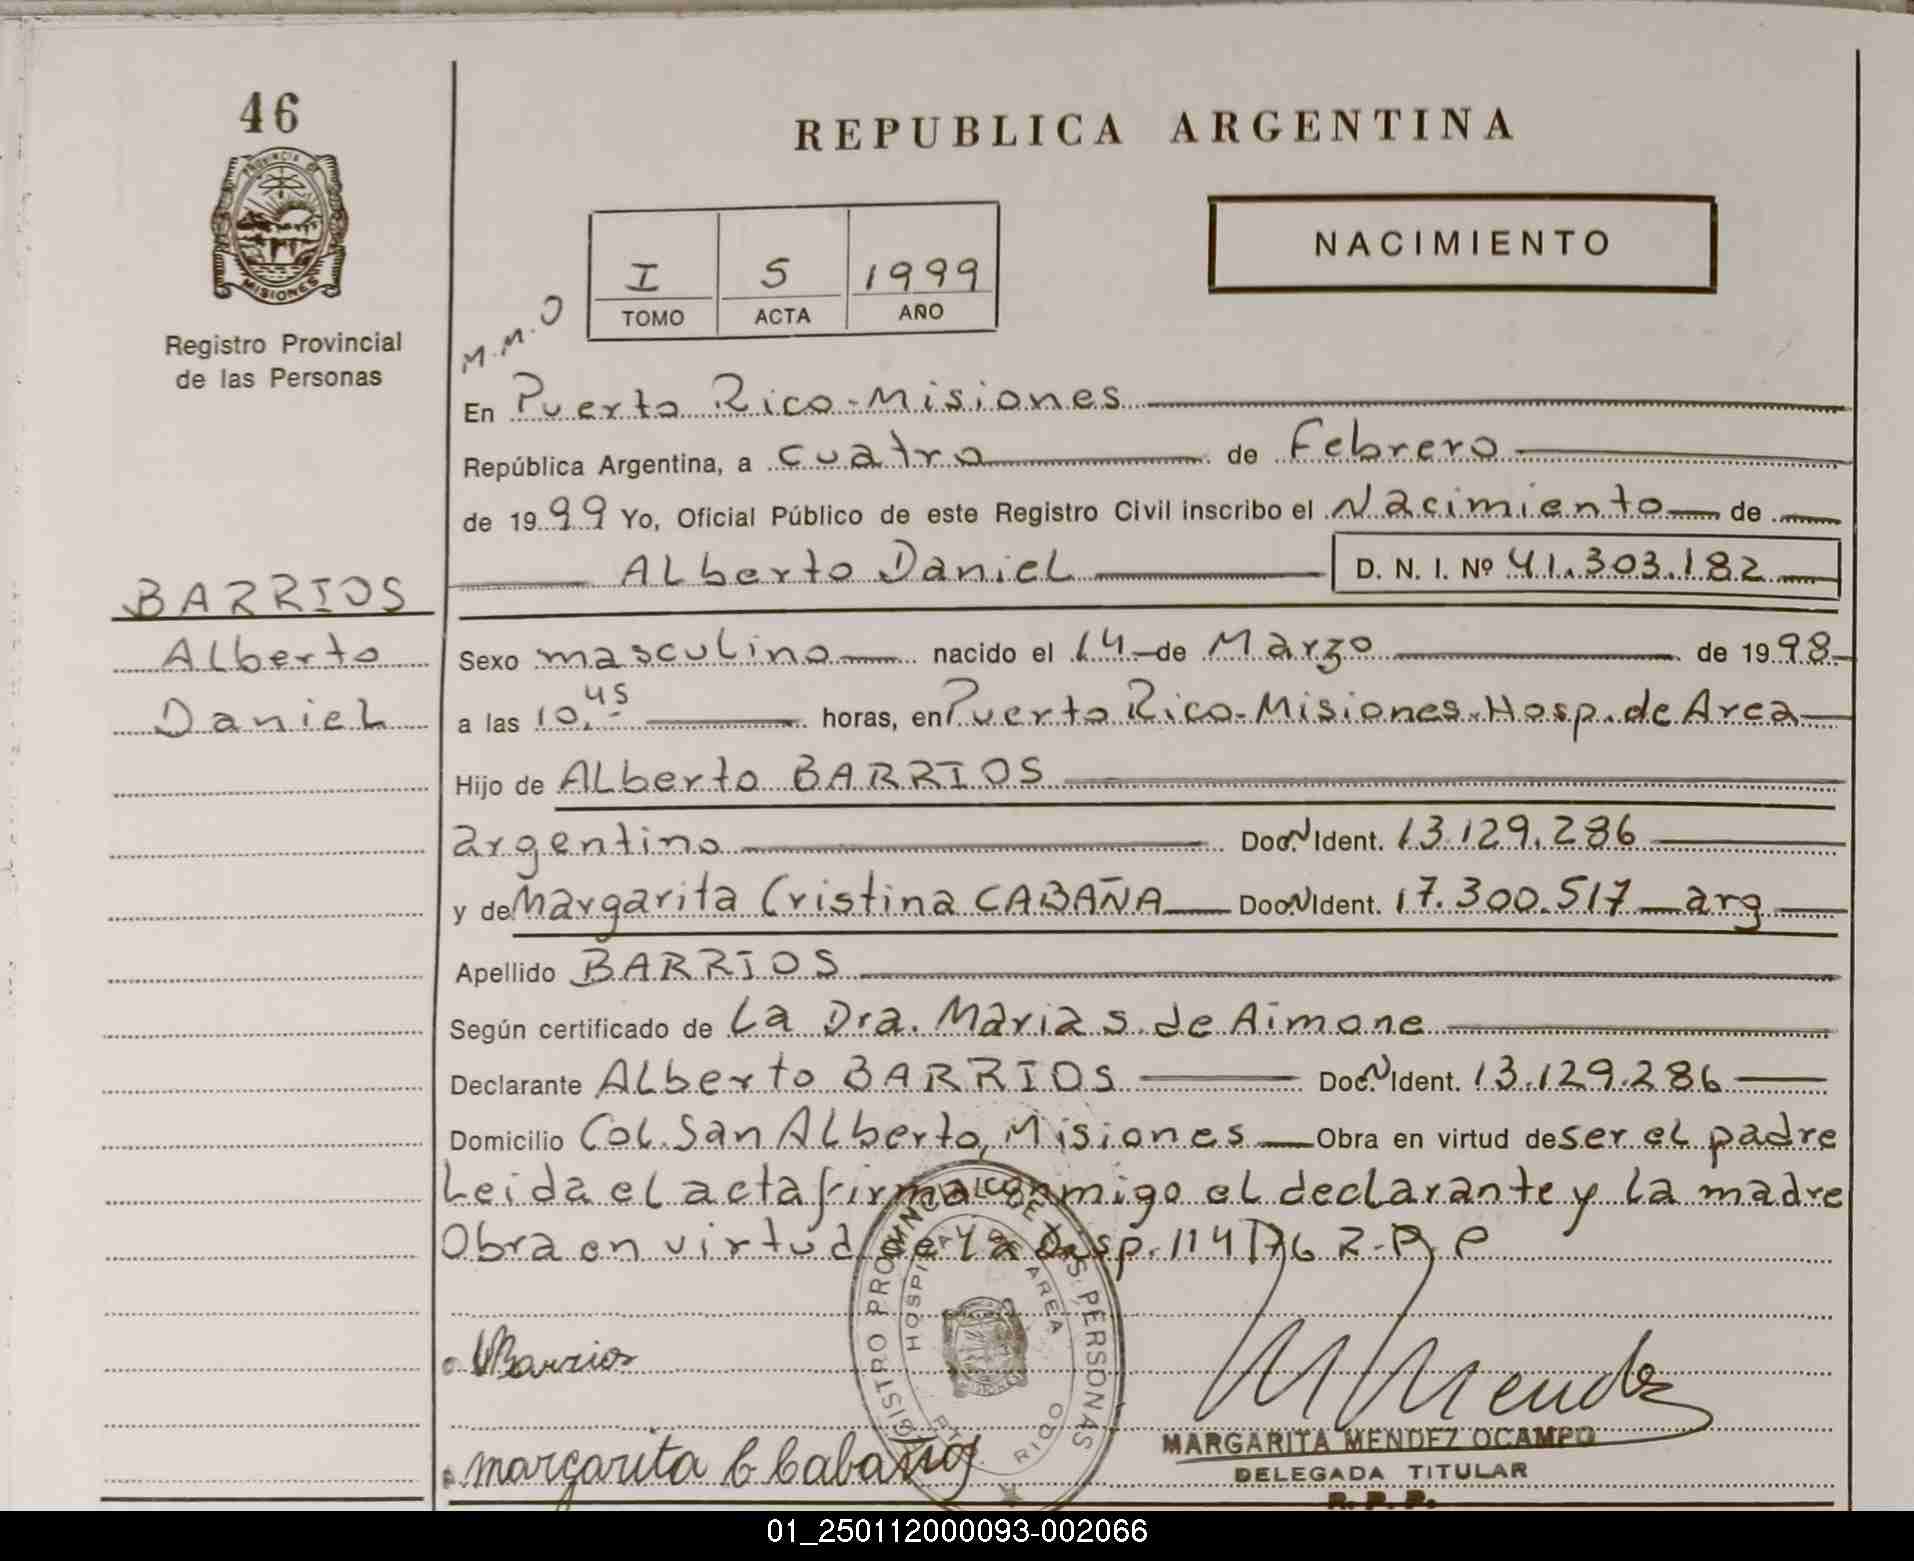 46
REPUBLICA ARGENTINA
PROVINCIA DE
MISIONES
Registro Provincial
de las Personas
NACIMIENTO
I S 1999
TOMO ACTA AÑO
M.M.O
En Puerto Rico-Misiones
República Argentina, a cuatro de Febrero
de 1999 Yo, Oficial Público de este Registro Civil inscribo el Nacimiento de
Alberto Daniel D. N. I. Nº 41.303.182
BARRIOS
Alberto
Daniel
Sexo masculino nacido el 14 de Marzo de 1998
a las 10,45 horas, en Puerto Rico-Misiones-Hosp. de Area
Hijo de Alberto BARRIOS
argentino Doc.N Ident. 13.129.286
y de Margarita Cristina CABAÑA Doc.N Ident. 17.300.517 arg
Apellido BARRIOS
Según certificado de La Dra. Maria S. de Aimone
Declarante Alberto BARRIOS Doc.N Ident. 13.129.286
Domicilio Col. San Alberto, Misiones Obra en virtud de ser el padre
Leida el acta firma conmigo el declarante y la madre
Obra en virtud de la Disp. 114/76 R.P.P
REGISTRO PROVINCIAL DE LAS PERSONAS
HOSPITAL DE AREA
PTO. RICO
Barrios
M Mendez
margarita C Cabaña
MARGARITA MENDEZ OCAMPO
DELEGADA TITULAR
R. P. P.
01_250112000093-002066